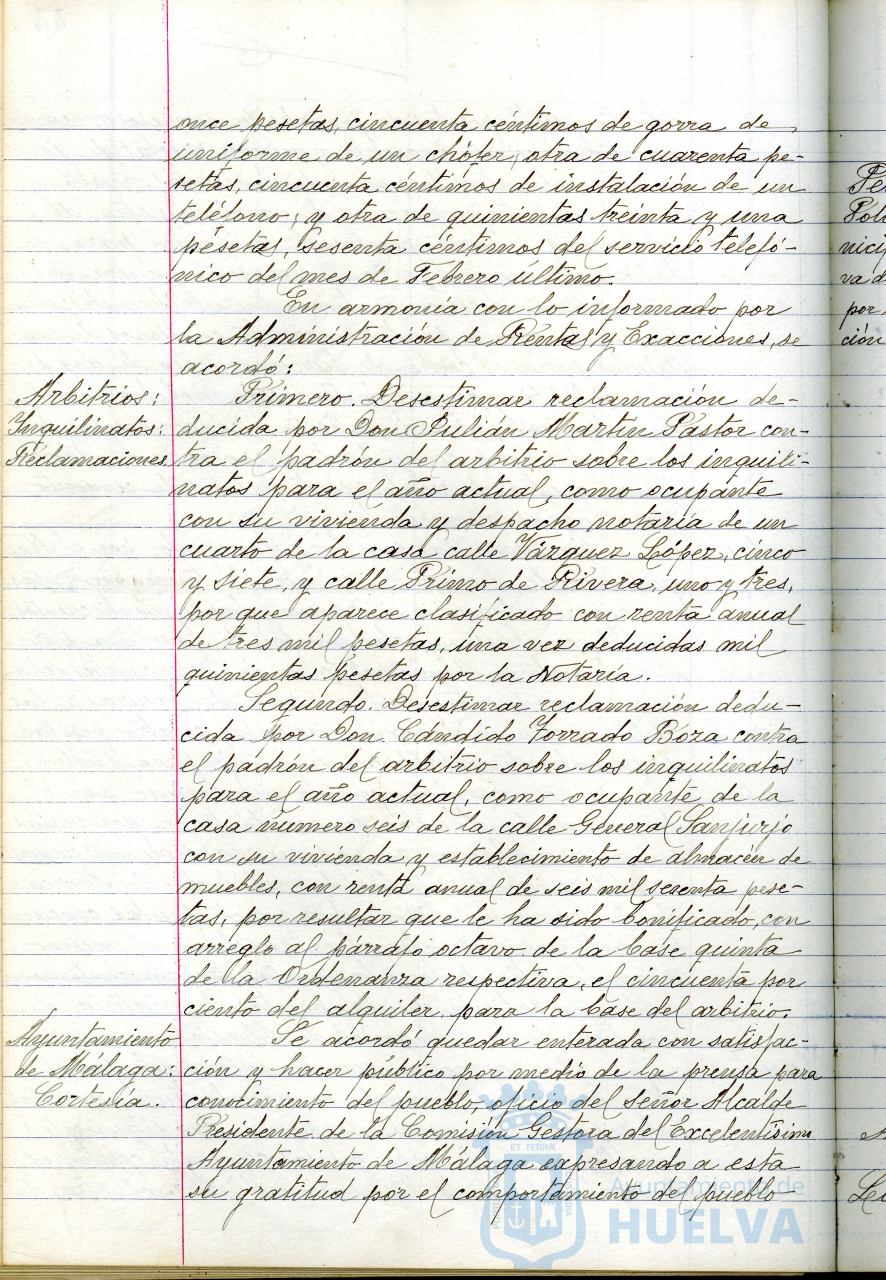 once pesetas, cincuenta céntimos de gorra de
uniforme de un chófer; otra de cuarenta pe-
setas, cincuenta céntimos de instalación de un
teléfono; y otra de quinientas treinta y una
pesetas, sesenta céntimos del servicio telefó-
nico del mes de Febrero ultimo.
En armonía con lo informado por
la Administración de Rentas y Exacciones, se
acordó:
Arbitrios:
Inquilinatos:
Reclamaciones.
Primero. Desestimar reclamación de-
ducida por Don Julián Martín Pastor con-
tra el padrón del arbitrio sobre los inquili-
natos para el año actual, como ocupante
con su vivienda y despacho notaría de un
cuarto de la casa calle Vázquez López, cinco
y siete, y calle Primo de Rivera, uno y tres,
por que aparece clasificado con renta anual
de tres mil pesetas, una vez deducidas mil
quinientas pesetas por la Notaría.
Segundo. Desestimar reclamación dedu-
cida por Don Cándido Torrado Boza contra
el padrón del arbitrio sobre los inquilinatos
para el año actual, como ocupante de la
casa número seis de la calle General Sanjurjo
con su vivienda y establecimiento de almacén de
muebles, con renta anual de seis mil sesenta pese-
tas, por resultar que le ha sido bonificado, con
arreglo al párrafo octavo de la base quinta
de la Ordenanza respectiva, el cincuenta por
ciento del alquiler para la base del arbitrio.
Ayuntamiento
de Málaga:
Cortesía.
Se acordó quedar enterada con satisfac-
ción y hacer público por medio de la prensa para
conocimiento del pueblo, oficio del señor Alcalde
Presidente de la Comisión Gestora del Excelentísimo
Ayuntamiento de Málaga expresando a esta
su gratitud por el comportamiento del pueblo
Ayuntamiento de
HUELVA
ET TERRA
nici
va d
por
ción